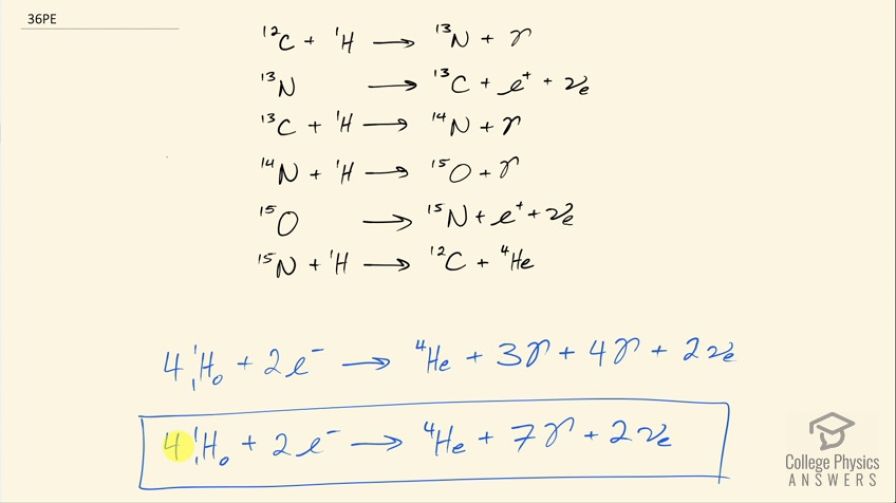 36PE
¹²C + ¹H → ¹³N + γ
¹³N → ¹³C + e⁺ + νₑ
¹³C + ¹H → ¹⁴N + γ
¹⁴N + ¹H → ¹⁵O + γ
¹⁵O → ¹⁵N + e⁺ + νₑ
¹⁵N + ¹H → ¹²C + ⁴He
4 ¹₁H₀ + 2e⁻ → ⁴He + 3γ + 4γ + 2νₑ
4 ¹₁H₀ + 2e⁻ → ⁴He + 7γ + 2νₑ
College Physics
ANSWERS